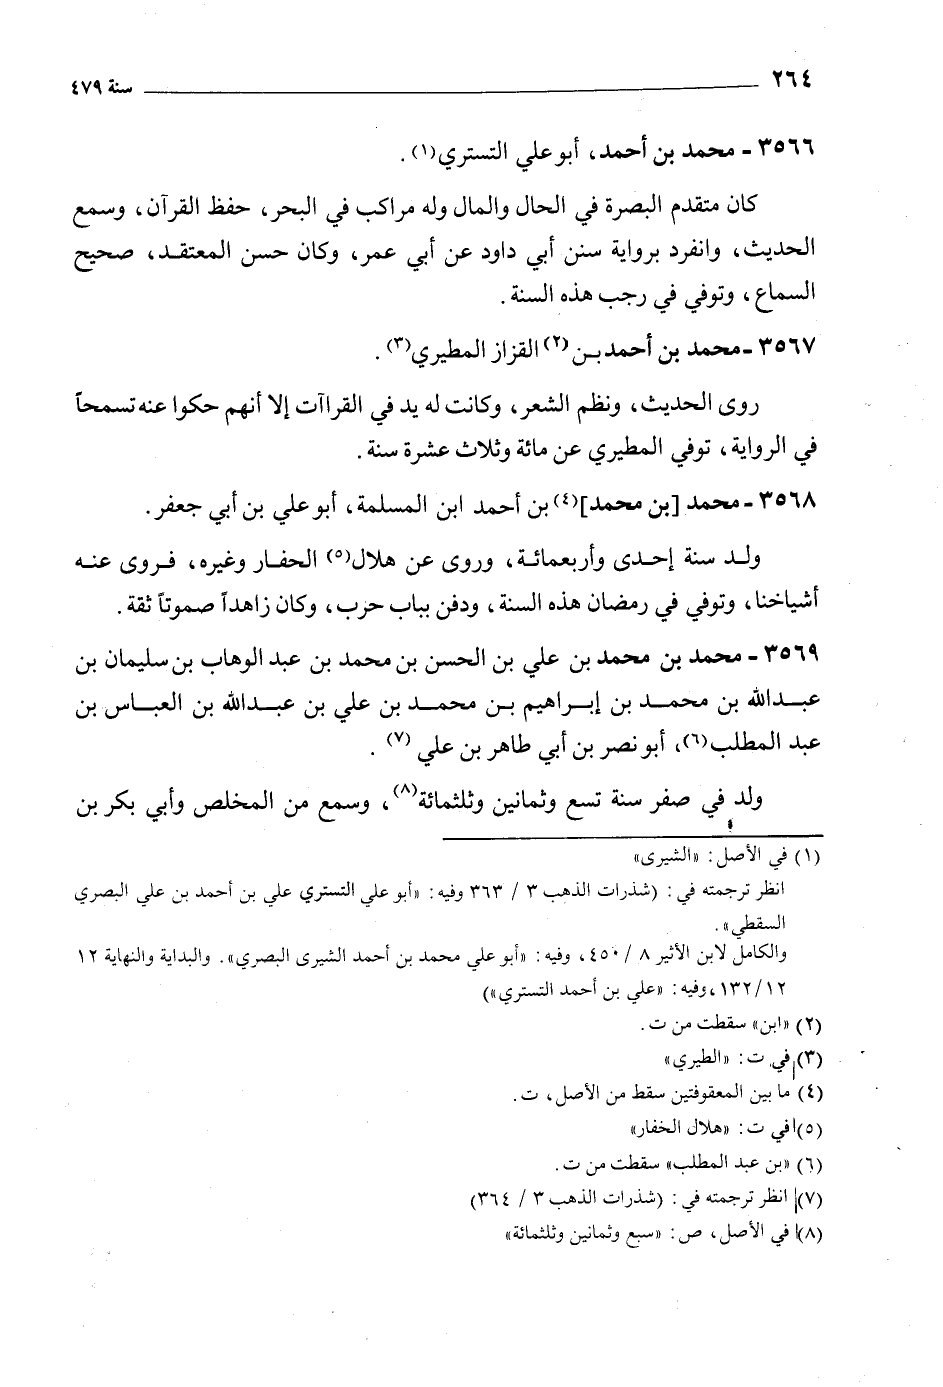 ٢٦٤ سنة ٤٧٩
٣٥٦٦ - محمد بن أحمد، أبو علي التستري(١).
كان متقدم البصرة في الحال والمال وله مراكب في البحر، حفظ القرآن، وسمع
الحديث، وانفرد برواية سنن أبي داود عن أبي عمر، وكان حسن المعتقد، صحيح
السماع، وتوفي في رجب هذه السنة.
٣٥٦٧ - محمد بن أحمد بن(٢) القزاز المطيري(٣).
روى الحديث، ونظم الشعر، وكانت له يد في القراآت إلا أنهم حكوا عنه تسمحاً
في الرواية، توفي المطيري عن مائة وثلاث عشرة سنة.
٣٥٦٨ - محمد [بن محمد](٤) بن أحمد ابن المسلمة، أبو علي بن أبي جعفر.
ولد سنة إحدى وأربعمائة، وروى عن هلال(٥) الحفار وغيره، فروى عنه
أشياخنا، وتوفي في رمضان هذه السنة، ودفن بباب حرب، وكان زاهداً صموتاً ثقة.
٣٥٦٩ - محمد بن محمد بن علي بن الحسن بن محمد بن عبد الوهاب بن سليمان بن
عبدالله بن محمد بن إبراهيم بن محمد بن علي بن عبدالله بن العباس بن
عبد المطلب(٦)، أبو نصر بن أبي طاهر بن علي(٧).
ولد في صفر سنة تسع وثمانين وثلثمائة(٨)، وسمع من المخلص وأبي بكر بن
(١) في الأصل: «الشيرى»
انظر ترجمته في: (شذرات الذهب ٣ / ٣٦٣ وفيه: «أبو علي التستري علي بن أحمد بن علي البصري
السقطي».
والكامل لابن الأثير ٨ / ٤٥٠، وفيه: «أبو علي محمد بن أحمد الشيرى البصري». والبداية والنهاية ١٢
١٣٢/١٢، وفيه: «علي بن أحمد التستري»)
(٢) «ابن» سقطت من ت.
(٣) في ت: «الطيري»
(٤) ما بين المعقوفتين سقط من الأصل، ت.
(٥) في ت: «هلال الخفار»
(٦) «بن عبد المطلب» سقطت من ت.
(٧) انظر ترجمته في: (شذرات الذهب ٣ / ٣٦٤)
(٨) في الأصل، ص: «سبع وثمانين وثلثمائة»